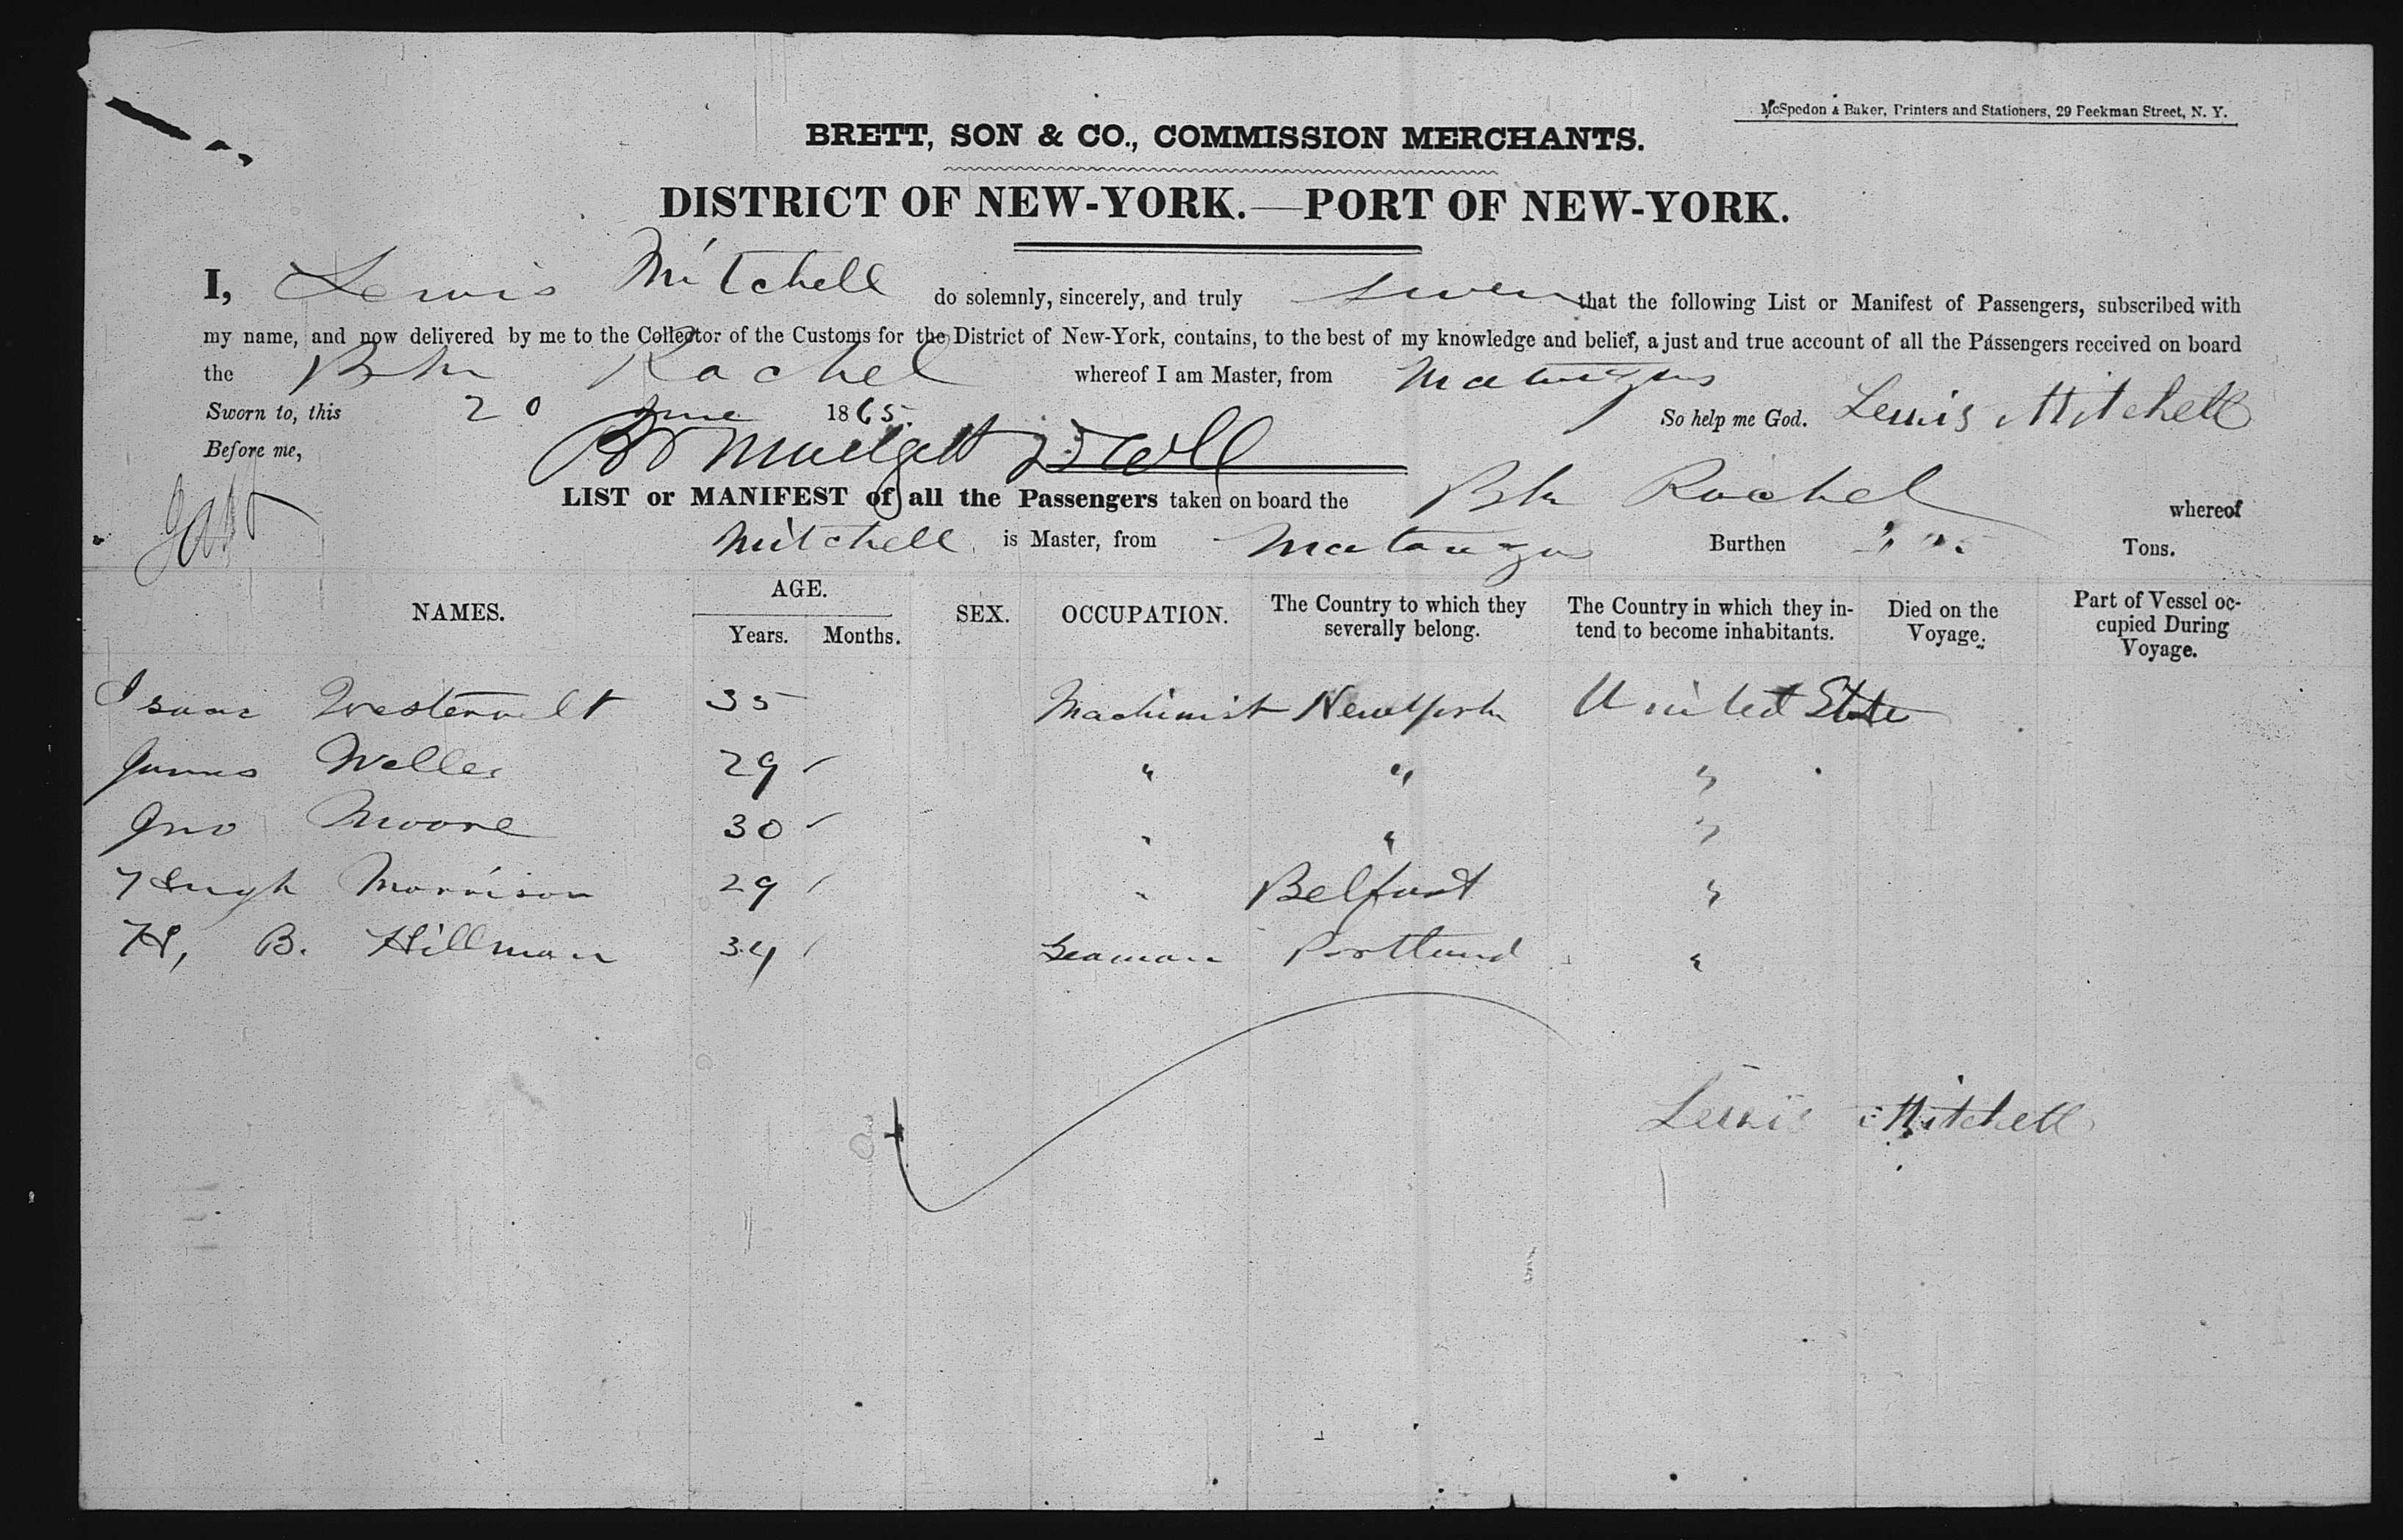 McSpedon & Baker, Printers and Stationers, 29 Beekman Street, N. Y.
BRETT, SON & CO., COMMISSION MERCHANTS.
DISTRICT OF NEW-YORK.—PORT OF NEW-YORK.
I, Lewis Mitchell do solemnly, sincerely, and truly swear that the following List or Manifest of Passengers, subscribed with
my name, and now delivered by me to the Collector of the Customs for the District of New-York, contains, to the best of my knowledge and belief, a just and true account of all the Passengers received on board
the Rachel whereof I am Master, from Matanzas
Sworn to, this 20 June 1865. So help me God. Lewis Mitchell
Before me,
LIST or MANIFEST of all the Passengers taken on board the Rachel whereof
Mitchell is Master, from Matanzas Burthen Tons.
NAMES. AGE. Years. Months. SEX. OCCUPATION. The Country to which they severally belong. The Country in which they in-tend to become inhabitants. Died on the Voyage. Part of Vessel oc-cupied During Voyage.
Isaac Westervelt 35 Machinist New York United State
James Weller 29 " " "
Jno Moore 30 " " "
Hugh Morrison 29 " Belfast "
H, B. Hillman 34 Seaman Portland "
Lewis Mitchell